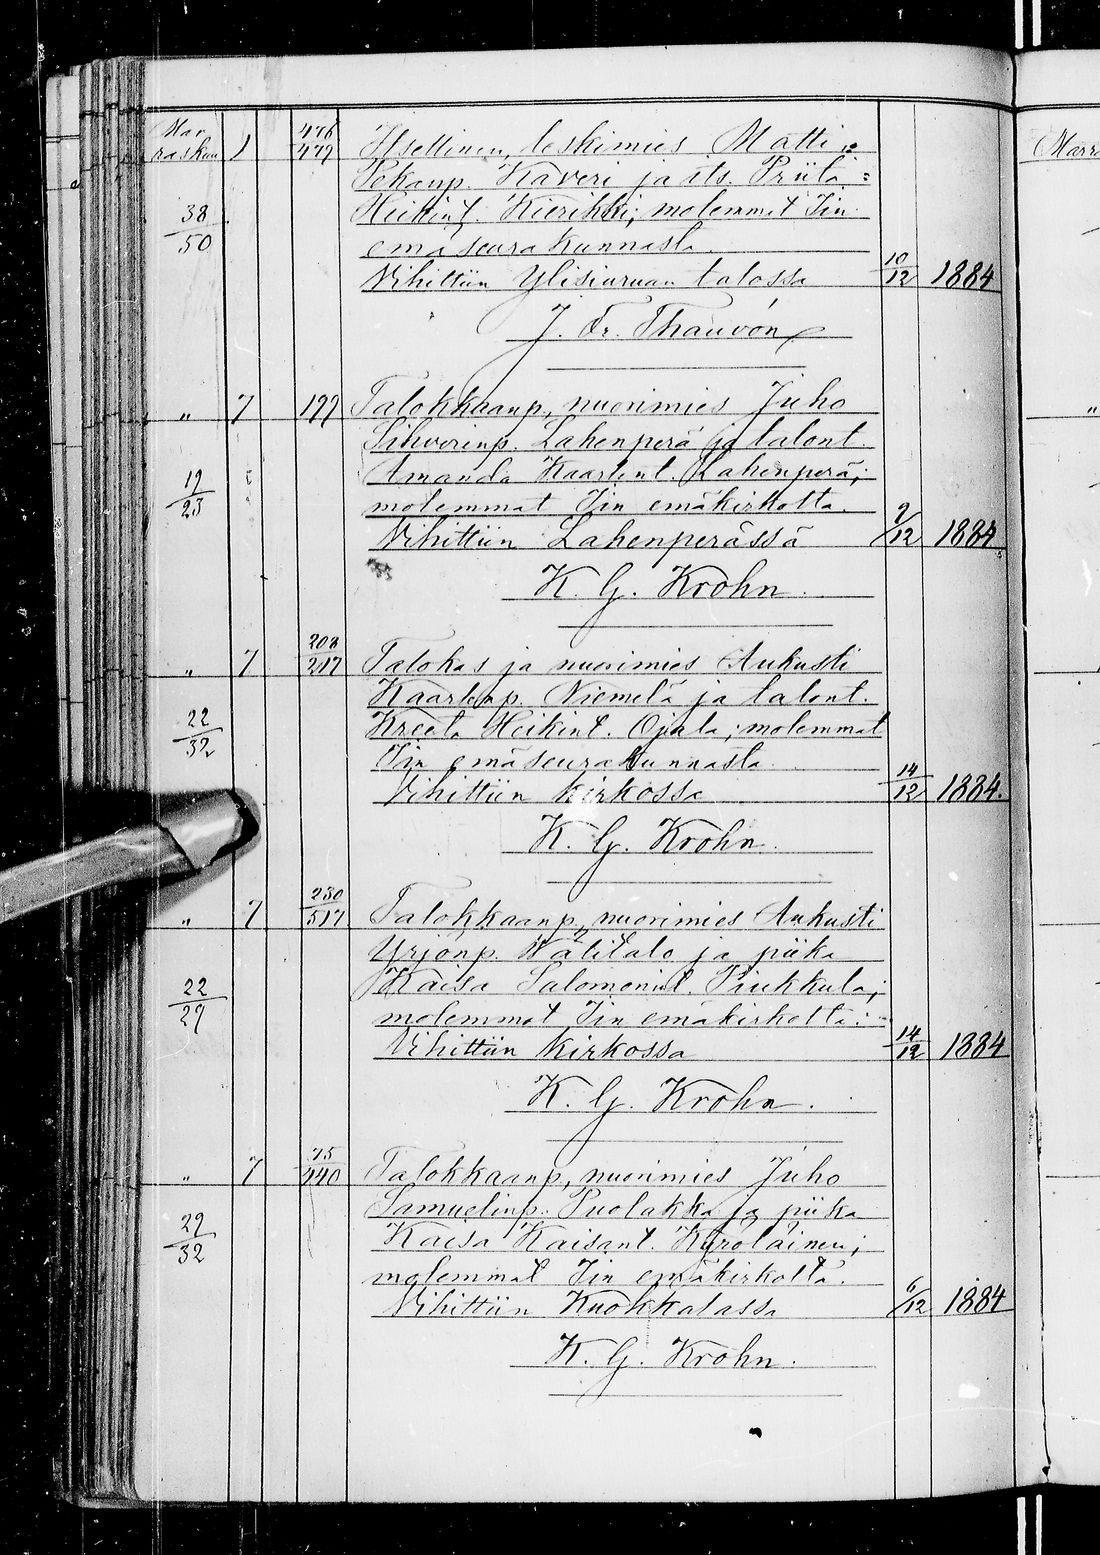 Mar 476
raskuu ) 479 Itsellinen, leskimies Matti
Pekanp. Kaveri ja its. Priita
38 Heikint. Kierikki; molemmat Iin
50 emäseurakunnasta. 10
Vihittiin Ylisiuruan talossa 12 1884
J. Fr. Thauvón
„ 7 199 Talokkaanp, nuorimies Juho
Sihverinp. Lahenperä ja talont.
19 Amanda Kaarlent. Lahenperä;
23 molemmat Iin emäkirkolta. 9
Vihittiin Lahenperässä /12 1884.
K. G. Krohn.
208
„ 7 217 Talokas ja nuorimies Aukusti
Kaarlenp. Niemelä ja talont.
22 Kreeta Heikint. Ojala; molemmat
32 Iin emäseurakunnasta. 14
Vihittiin kirkossa 12 1884.
K. G. Krohn.
230
„ 7 517 Talokkaanp, nuorimies Aukusti
Yrjönp. Välitalo ja piika
22 Kaisa Salomonint. Piukkula;
29 molemmat Iin emäkirkolta. 14
Vihittiin kirkossa 12 1884
K. G. Krohn.
75
„ 7 440 Talokkaanp, nuorimies Juho
Samuelinp. Puolakka ja piika
29 Kaisa Kaisant. Kyröläinen;
32 molemmat Iin emäkirkolta. 6
Vihittiin Kuokkalassa /12 1884
K. G. Krohn.